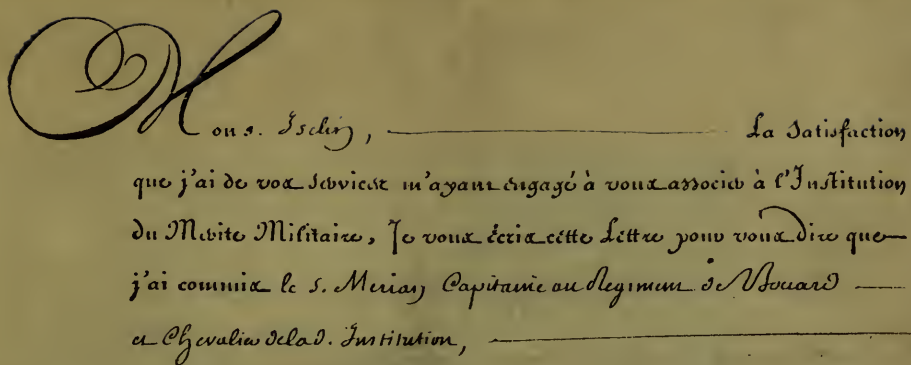 Mons. Iselin, La Satisfaction
que j'ai de vos Services m'ayant engagé à vous associer à l'Institution
du Mérite Militaire, Je vous écris cette Lettre pour vous dire que
j'ai commis le S. Merian Capitaine au Regiment de
et Chevalier de la d. Institution,